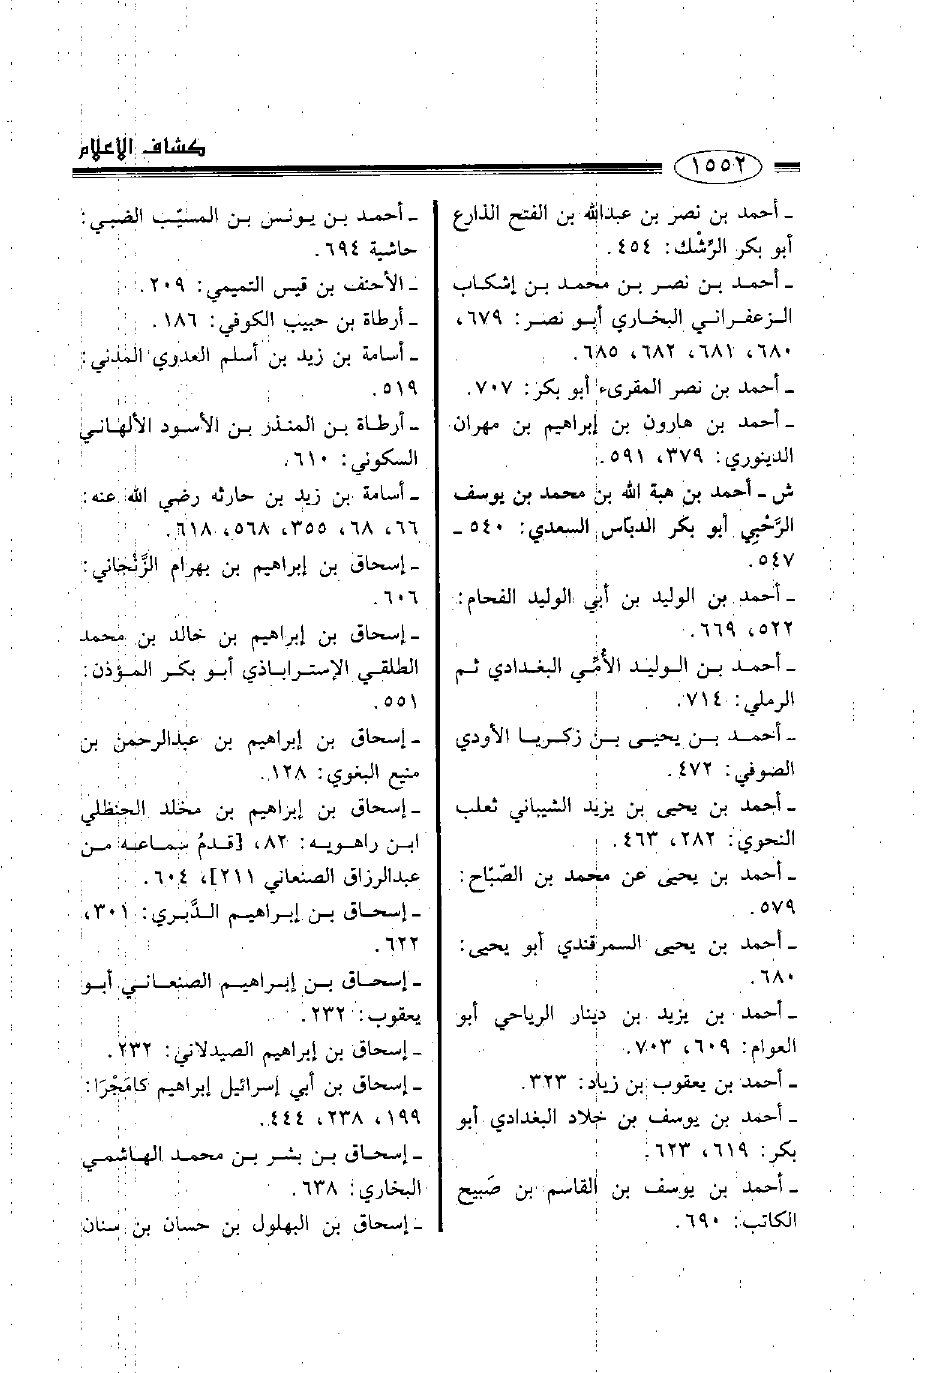 كشاف الأعلام
١٥٥٢
ـ أحمد بن نصر بن عبدالله بن الفتح الذارع
أبو بكر الرِّشْك: ٤٥٤.
ـ أحمد بن نصر بن محمد بن إشكاب
الزعفراني البخاري أبو نصر: ٦٧٩،
٦٨٠، ٦٨١، ٦٨٢، ٦٨٥.
ـ أحمد بن نصر المقرىء أبو بكر: ٧٠٧.
ـ أحمد بن هارون بن إبراهيم بن مهران
الدينوري: ٣٧٩، ٥٩١.
ش ـ أحمد بن هبة الله بن محمد بن يوسف
الرَّحْبِي أبو بكر الدبّاس السعدي: ٥٤٠ ـ
٥٤٧.
ـ أحمد بن الوليد بن أبي الوليد الفحام:
٥٢٢، ٦٦٩.
ـ أحمد بن الوليد الأُمِّي البغدادي ثم
الرملي: ٧١٤.
ـ أحمد بن يحيى بن زكريا الأودي
الصوفي: ٤٧٢.
ـ أحمد بن يحيى بن يزيد الشيباني ثعلب
النحوي: ٢٨٢، ٤٦٣.
ـ أحمد بن يحيى عن محمد بن الصّبّاح:
٥٧٩.
ـ أحمد بن يحيى السمرقندي أبو يحيى:
٦٨٠.
ـ أحمد بن يزيد بن دينار الرياحي أبو
العوام: ٦٠٩، ٧٠٣.
ـ أحمد بن يعقوب بن زياد: ٣٢٣.
ـ أحمد بن يوسف بن خلاد البغدادي أبو
بكر: ٦١٩، ٦٢٣.
ـ أحمد بن يوسف بن القاسم بن صَبيح
الكاتب: ٦٩٠.
ـ أحمد بن يونس بن المسيّب الضبي:
حاشية ٦٩٤.
ـ الأحنف بن قيس التميمي: ٢٠٩.
ـ أرطاة بن حبيب الكوفي: ١٨٦.
ـ أسامة بن زيد بن أسلم العدوي المدني:
٥١٩.
ـ أرطاة بن المنذر بن الأسود الألهاني
السكوني: ٦١٠.
ـ أسامة بن زيد بن حارثه رضي الله عنه:
٦٦، ٦٨، ٣٥٥، ٥٦٨، ٦١٨.
ـ إسحاق بن إبراهيم بن بهرام الزَّنْجاني:
٦٠٦.
ـ إسحاق بن إبراهيم بن خالد بن محمد
الطلقي الإستراباذي أبو بكر المؤذن:
٥٥١.
ـ إسحاق بن إبراهيم بن عبدالرحمن بن
منيع البغوي: ١٢٨.
ـ إسحاق بن إبراهيم بن مخلد الحنظلي
ابن راهويه: ٨٢، [قدمُ سماعه من
عبدالرزاق الصنعاني ٢١١]، ٦٠٤.
ـ إسحاق بن إبراهيم الدَّبري: ٣٠١،
٦٢٢.
ـ إسحاق بن إبراهيم الصنعاني أبو
يعقوب: ٢٣٢.
ـ إسحاق بن إبراهيم الصيدلاني: ٢٣٢.
ـ إسحاق بن أبي إسرائيل إبراهيم كامَجْرَا:
١٩٩، ٢٣٨، ٤٤٤.
ـ إسحاق بن بشر بن محمد الهاشمي
البخاري: ٦٣٨.
ـ إسحاق بن البهلول بن حسان بن سنان